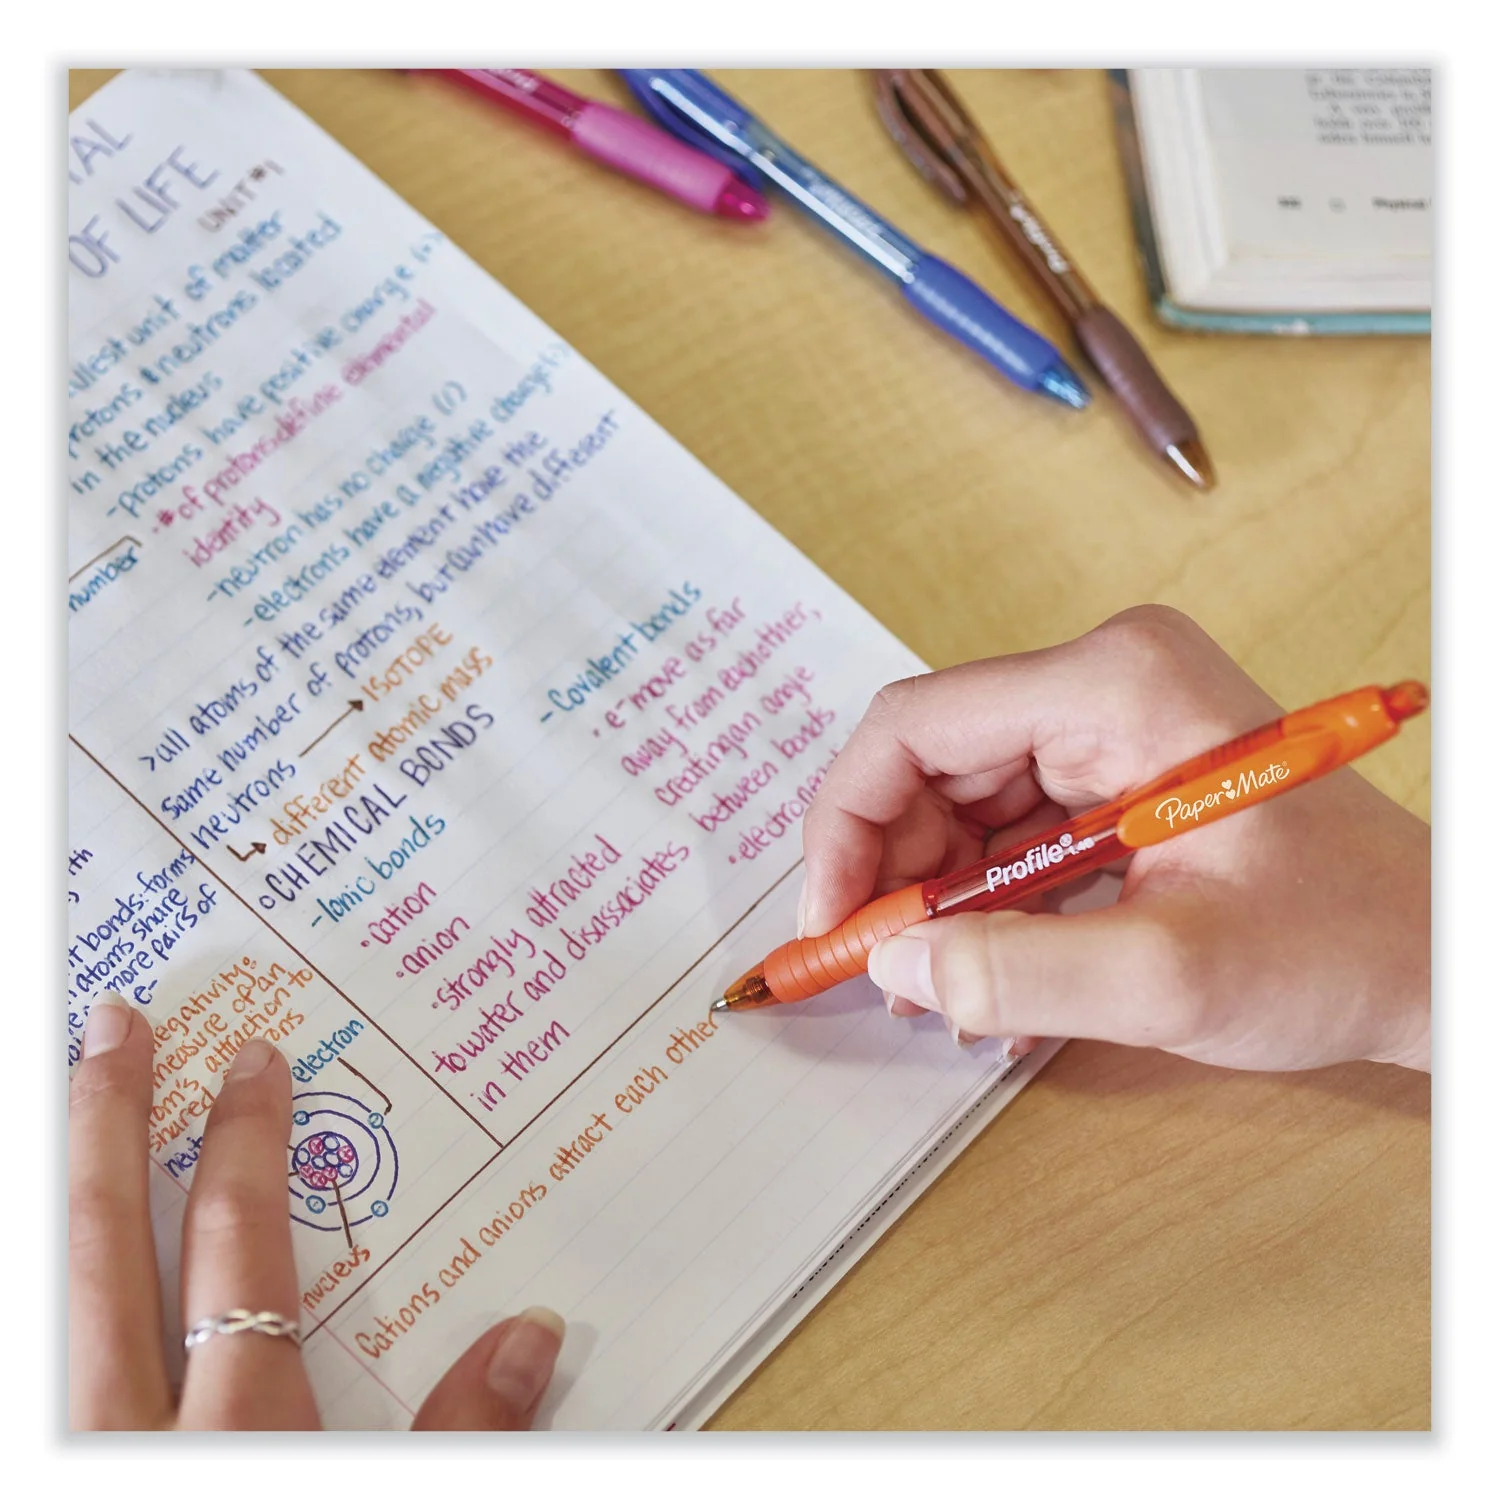 OF LIFE
UNIT #1
unit of matter
& neutrons located
in the nucleus
-protons have positive charge (+)
·# of protons define elemental
identity
number
-neutron has no charge (/)
-electrons have a negative charge (-)
>all atoms of the same element have the
same number of protons, but can have different
neutrons → ISOTOPE
↳ different atomic mass
○CHEMICAL BONDS
-Ionic bonds
·cation
·anion
·strongly attracted
to water and disassociates
in them
-Covalent bonds
·e- move as far
away from each other,
creating an angle
between bonds
bonds: forms
atoms share
more pairs of
e-
measure of an
attraction to
shared
electron
nucleus
Cations and anions attract each other
Profile®
Paper Mate®
Profile